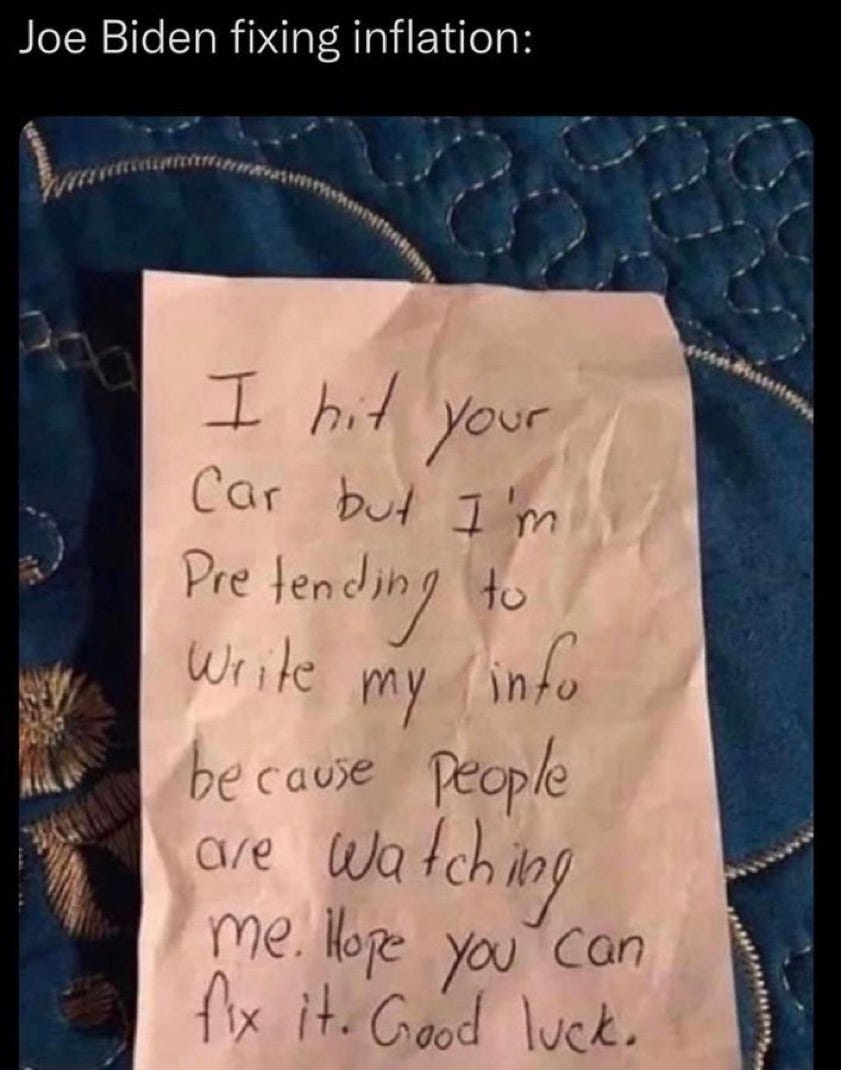 Joe Biden fixing inflation:
I hit your
Car but I'm
Pretending to
Write my info
because people
are watching
me. Hope you can
fix it. Good luck.